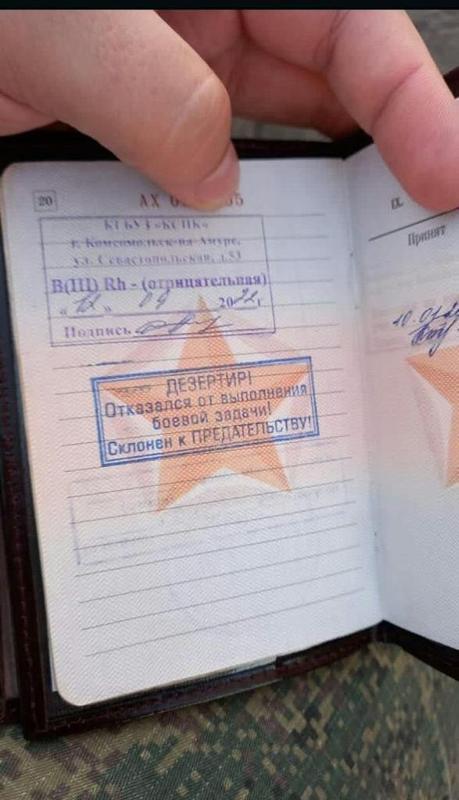 20
АХ
КГБУЗ «КСПК»
г. Комсомольск-на-Амуре,
ул. Севастопольская, д.53
B(III) Rh - (отрицательная)
« 12 » 09 2022г.
Подпись
ДЕЗЕРТИР!
Отказался от выполнения
боевой задачи!
Склонен к ПРЕДАТЕЛЬСТВУ!
IX.
Принят